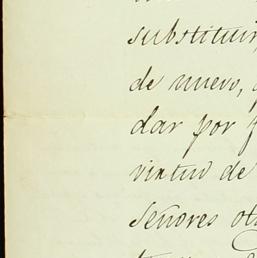 substituir
de nuevo,
dar por
virtud de
señores